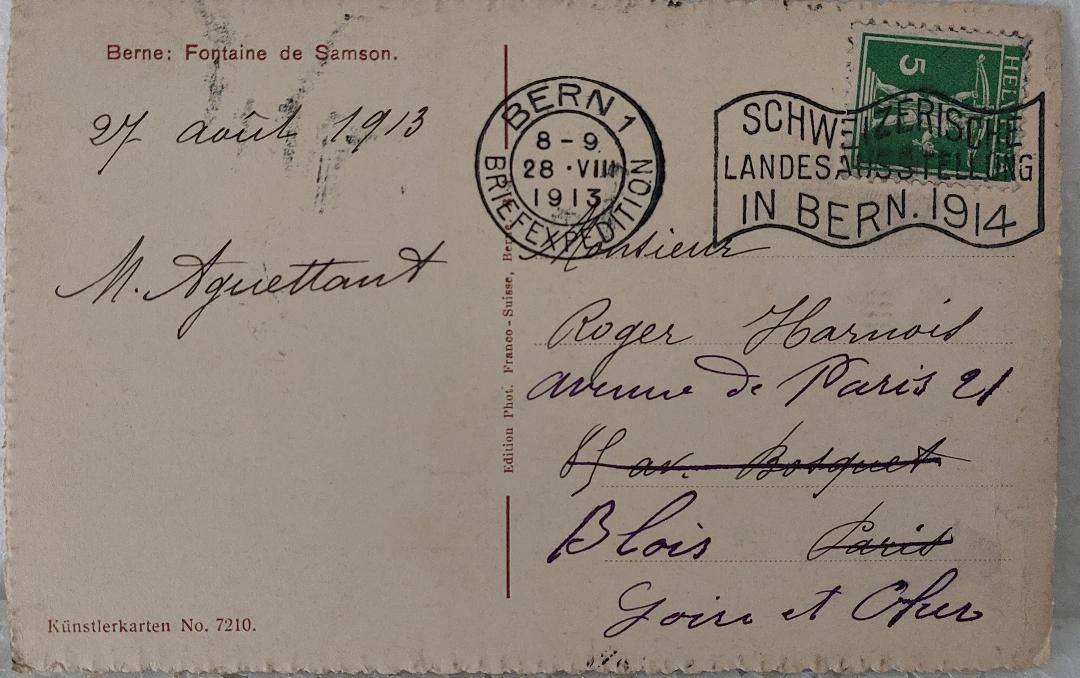 Berne: Fontaine de Samson.
27 août 1913
M. Aguettant
Künstlerkarten No. 7210.
Edition Phot. Franco-Suisse, Berne
BERN 1
8-9
28·VIII
1913
BRIEFEXPEDITION
HEL
5
SCHWEIZERISCHE
LANDESAUSSTELLUNG
IN BERN. 1914
Monsieur
Roger Harnois
avenue de Paris 21
85 av. Bosquet
Blois Paris
Loir et Cher